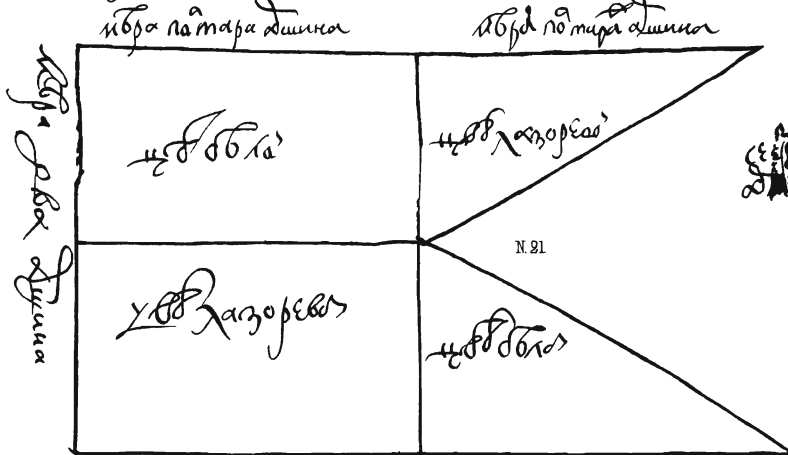 мѣра полтара аршина
мѣра полтара аршина
мѣра два аршина
цвѣт бѣлои
цвѣт лазоревои
N. 21
цвѣт лазоревои
цвѣт бѣлои